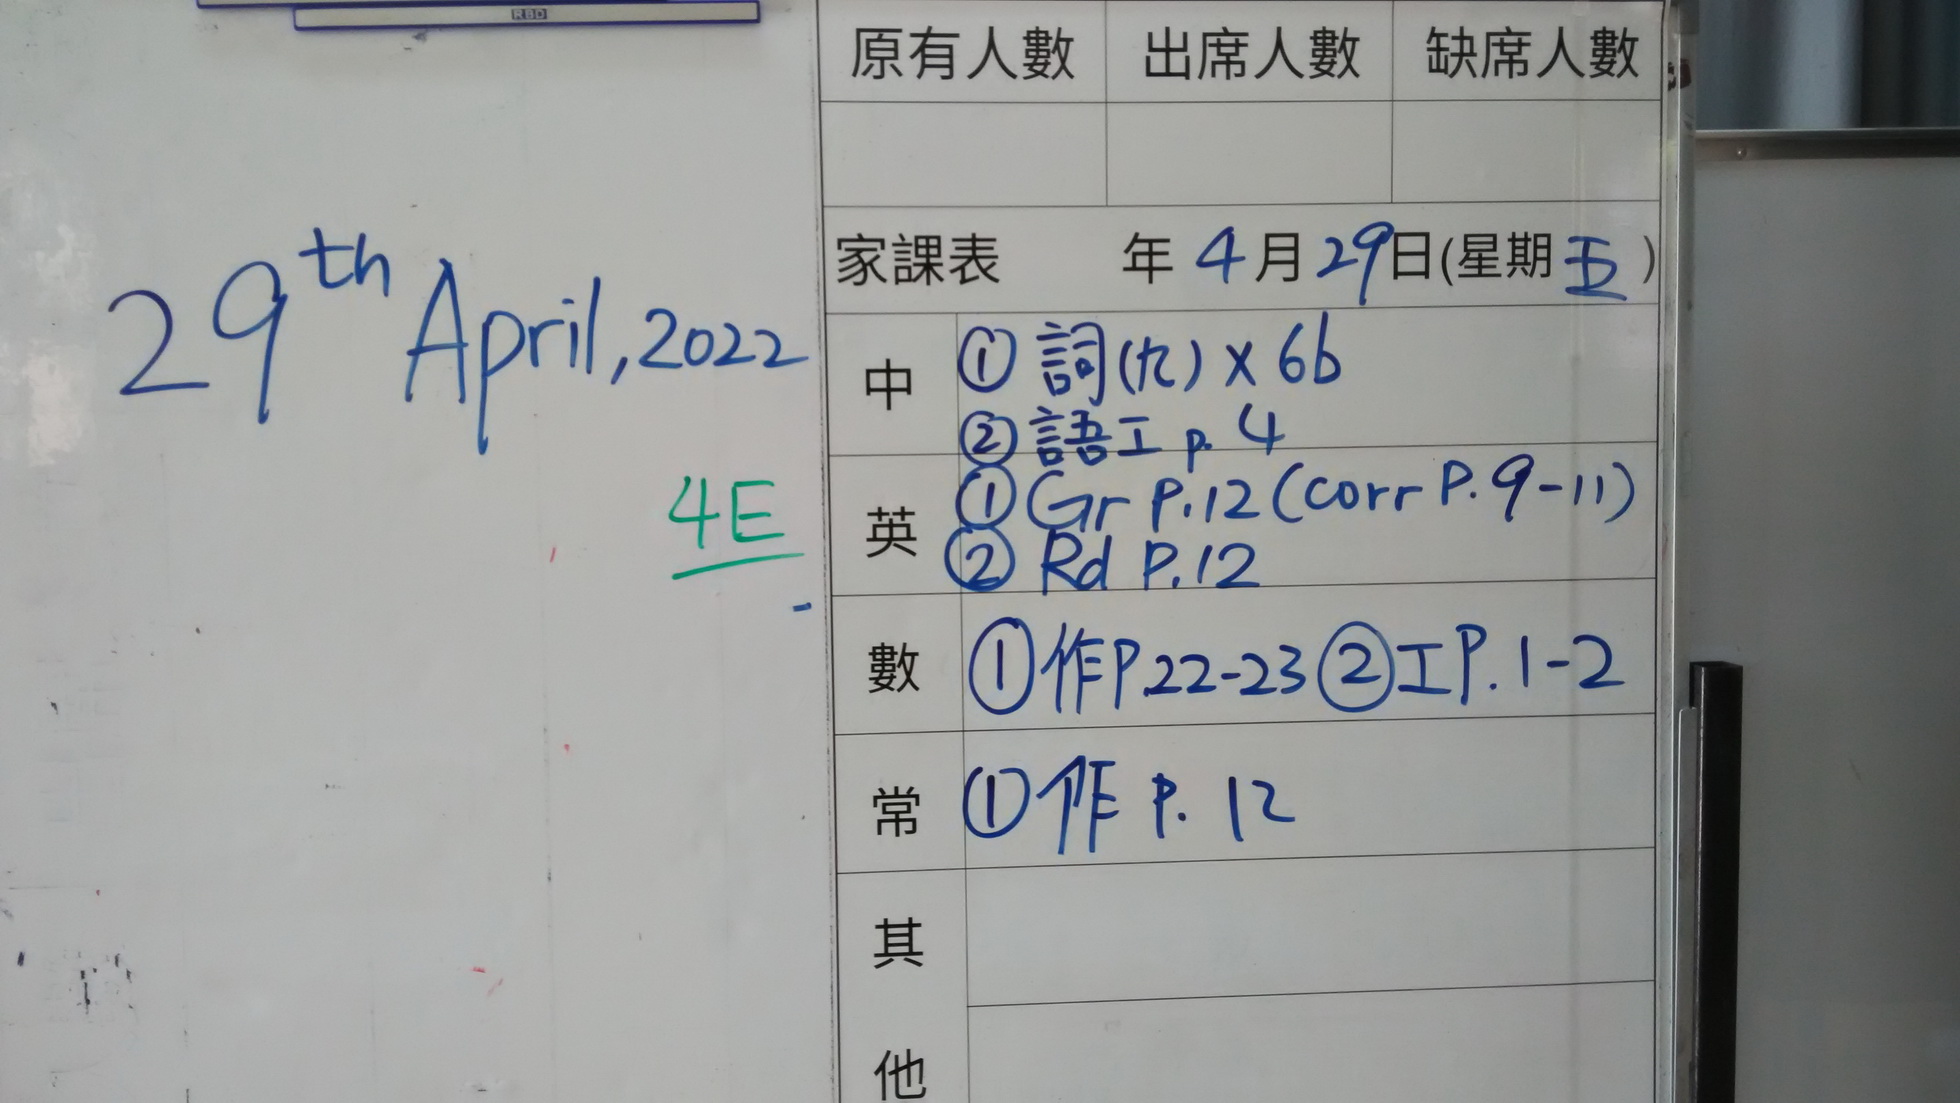 RBD
29th April, 2022
4E
原有人數 出席人數 缺席人數
家課表 年 4 月 29 日(星期 五 )
中 ① 詞(九) x 6b
② 語工 p. 4
英 ① Gr P.12 (corr P. 9-11)
② Rd P.12
數 ① 作P.22-23 ② 工P. 1-2
常 ① 作 P. 12
其
他